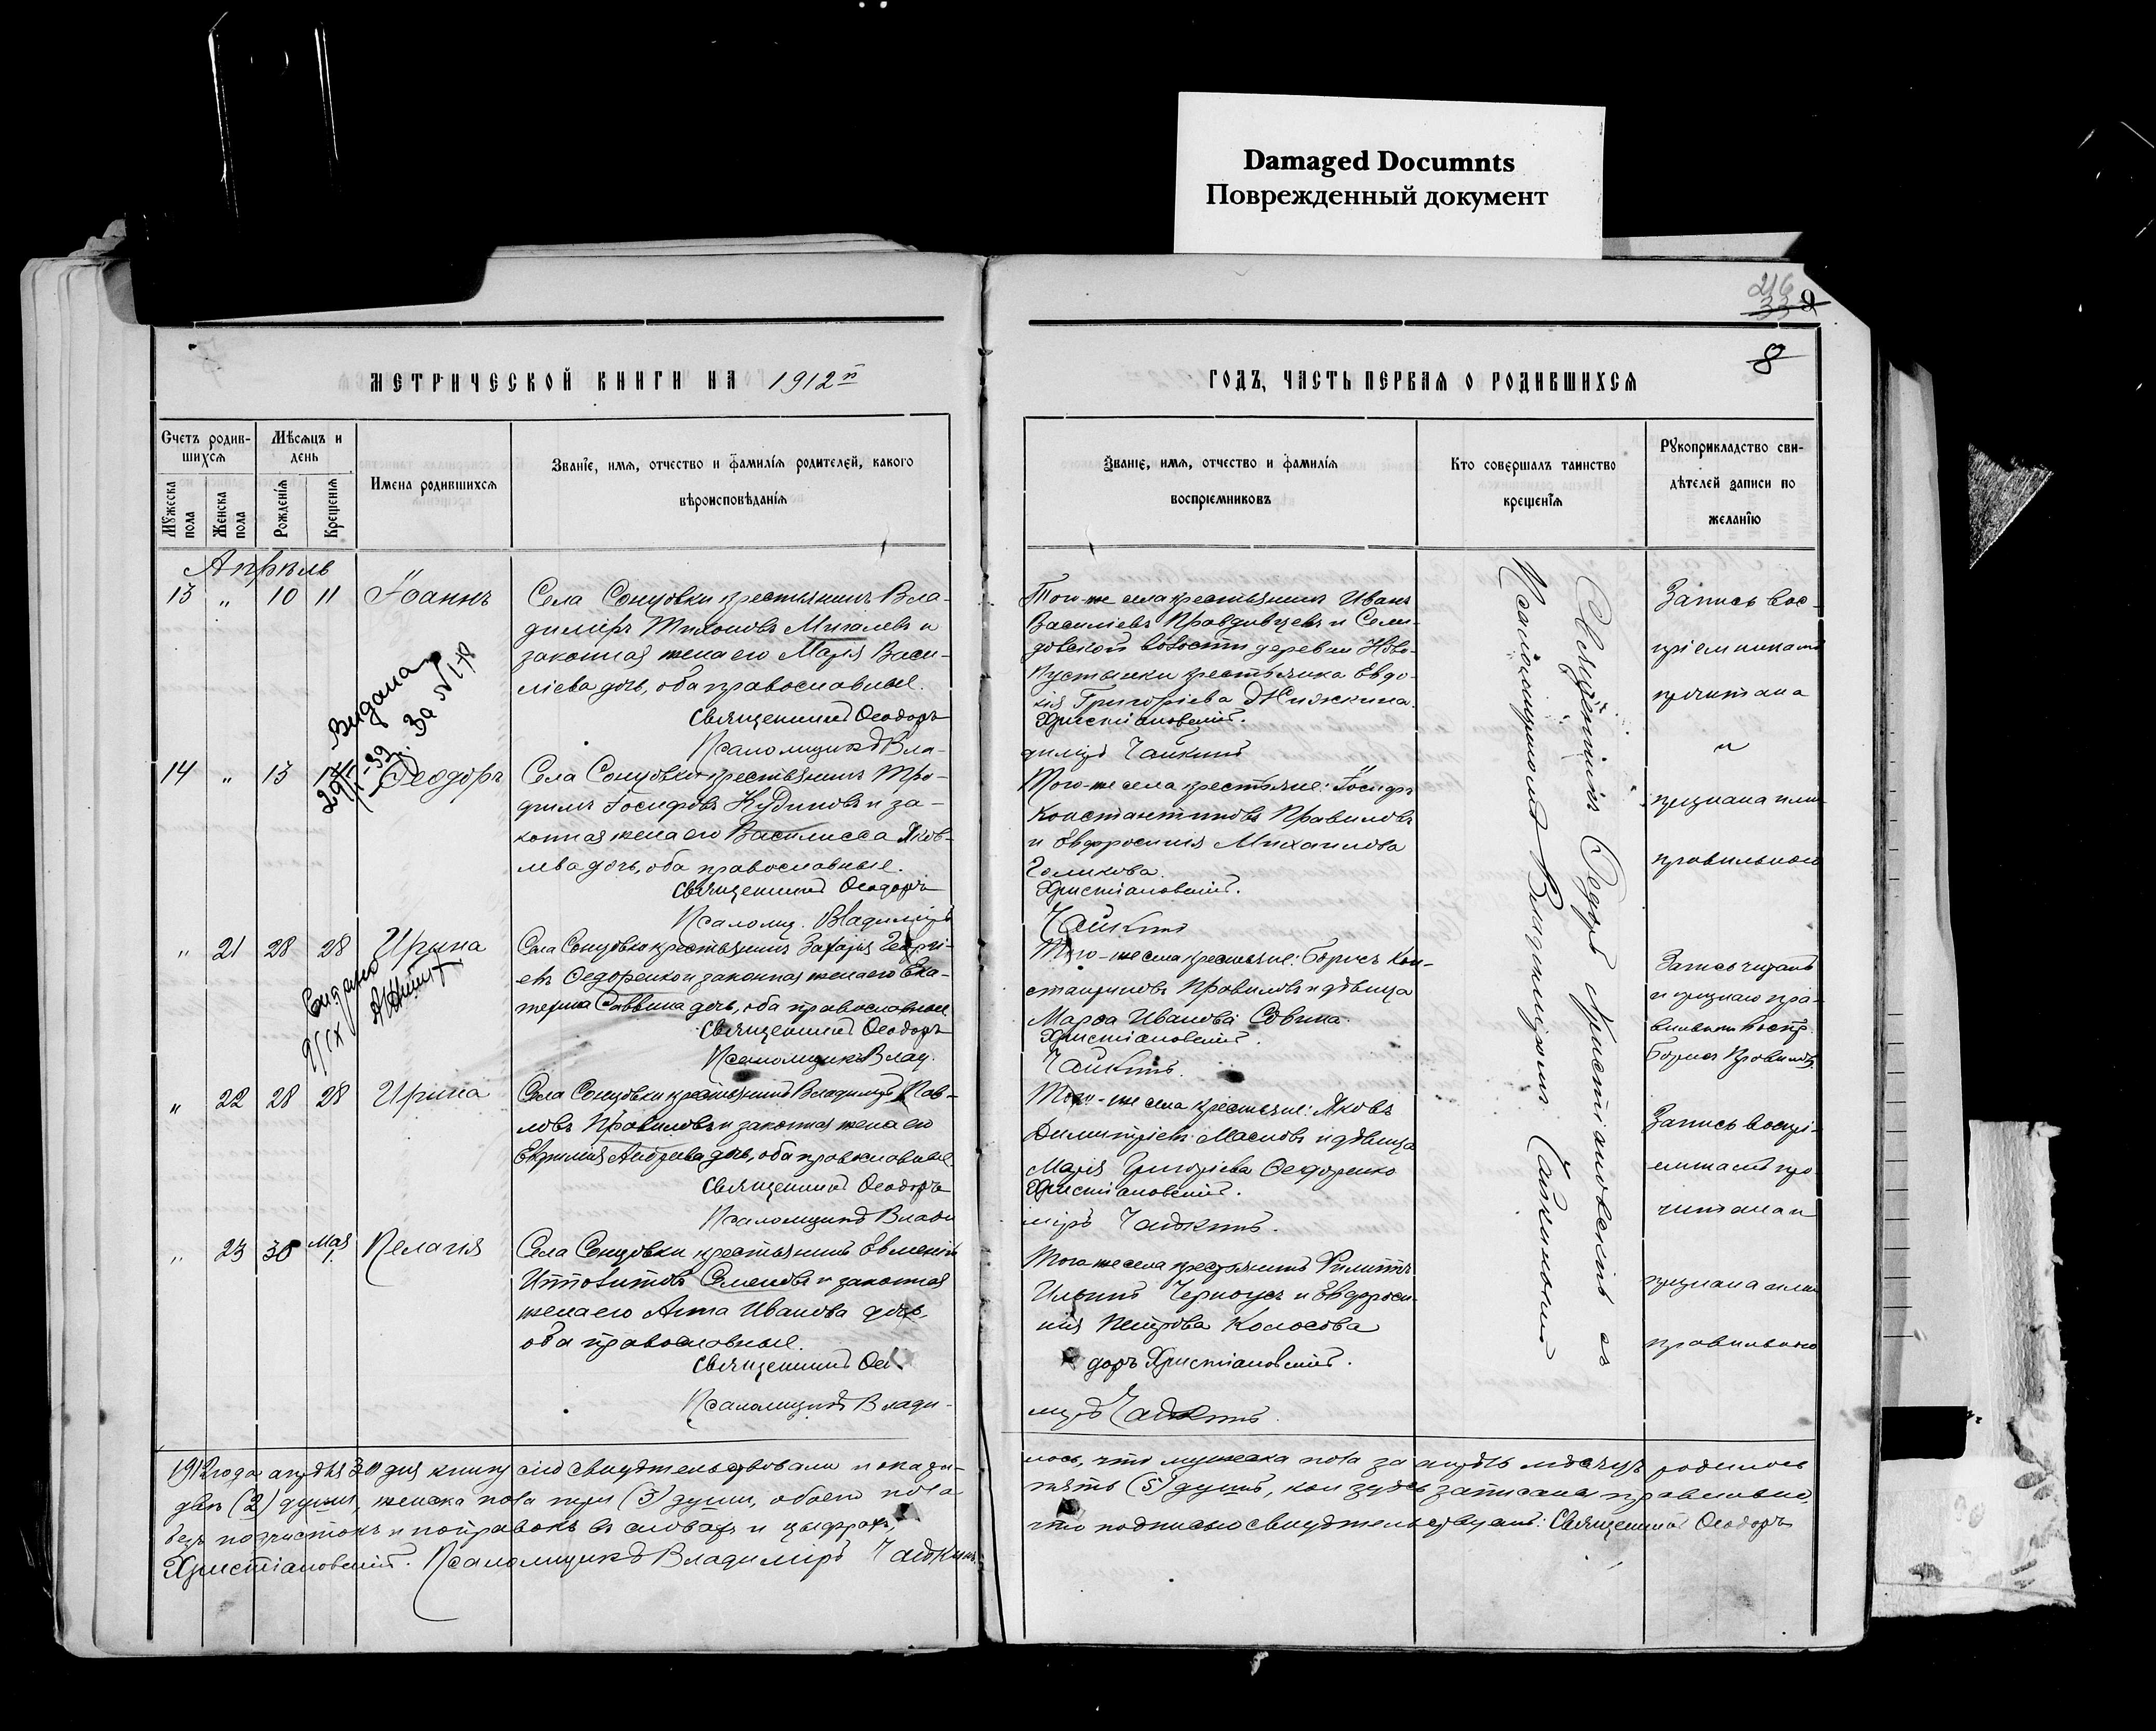 Damaged Documnts
Поврежденный документ
216
33
8
МЕТРИЧЕСКОЙ КНИГИ НА 1912й
ГОДЪ, ЧАСТЬ ПЕРВАЯ О РОДИВШИХСЯ
Счетъ родив-
шихся
Мужеска
пола
Женска
пола
Мѣсяцъ и
день
Рожденія
Крещенія
Имена родившихся
Званіе, имя, отчество и фамилія родителей, какого
вѣроисповѣданія
Званіе, имя, отчество и фамилія
воспріемниковъ
Кто совершалъ таинство
крещенія
Рукоприкладство сви-
дѣтелей записи по
желанію
Апрѣль
13 " 10 11 Іоаннъ
Села Сонцовки крестьянинъ Вла-
димиръ Тихоновъ Мигалевъ и
законная жена его Марія Васи-
ліева дочь, оба православные.
Священникъ Ѳеодоръ
Псаломщикъ Вла-
Того-же села крестьянинъ Иванъ
Василіевъ Правдивцевъ и Сели-
довской волости деревни Ново-
Пустынки крестьянка Евдо-
кія Григоріева
Христіановскій.
диміръ Чайкинъ
Запись вос-
пріемникамъ
прочитана
и
признана ими
правильной
Видана
За №
14 " 13 Ѳеодоръ
Села Сонцовки крестьянинъ Тро-
фимъ Іосифовъ Кудиновъ и за-
конная жена его Василисса Яков-
лева дочь, оба православные.
Священникъ Ѳеодоръ
Псаломщ. Владиміръ
Того-же села крестьяне: Іосифъ
Константиновъ Правиловъ
и Евфросинія Михаилова
Голикова.
Христіановскій.
Чайкинъ
" 21 28 28 Ирина
Села Сонцовки крестьянинъ Захарія Георгі-
евъ Ѳедоренко и законная жена его Ека-
терина Саввина дочь, оба православные
Священникъ Ѳеодоръ
Псаломщикъ Влад.
Того-же села крестьяне: Борисъ Кон-
стантиновъ Правиловъ и дѣвица
Марѳа Иванова Савина.
Христіановскій.
Чайкинъ.
Запись читалъ
и признаю пра-
вильной воспр.
Борисъ Правиловъ
" 22 28 28 Ирина
Села Сонцовки крестьянинъ Владиміръ Пав-
ловъ Правиловъ и законная жена его
Евфимія Андреева дочь, оба православные.
Священникъ Ѳеодоръ
Псаломщикъ Влади
Того-же села крестьяне: Яковъ
Димитріевъ Масловъ и дѣвица
Марія Григоріева Ѳедоренко
Христіановскій.
міръ Чайкинъ.
Запись воспрі-
емникамъ про-
читана и
признана ими
правильною
" 23 30 Мая 1. Пелагія
Села Сонцовки крестьянинъ Евменій
Ипполитовъ Семеновъ и законная
жена его Анна Иванова дочь,
оба православные.
Священникъ Ѳео
Псаломщикъ Влади-
Того же села крестьянинъ Филиппъ
Ильинъ Черноусъ и Евфроси-
нія Петрова Колосова
доръ Христіановскій.
міръ Чайкинъ.
Священникъ Ѳедоръ Христіановскій съ
Псаломщикомъ Владиміромъ Чайкинымъ
1912 года апрѣля 30 дня книгу сію свидѣтельствовали и оказа-
лось, что мужеска пола за апрѣль мѣсяцъ родилось
двѣ (2) души, женска пола три (3) души, обоего пола
пять (5) душъ, кои здѣсь записаны правильно,
безъ подчистокъ и поправокъ въ словахъ и цыфрахъ,
что подписью свидѣтельствуемъ: Священникъ Ѳеодоръ
Христіановскій. Псаломщикъ Владиміръ Чайкинъ.